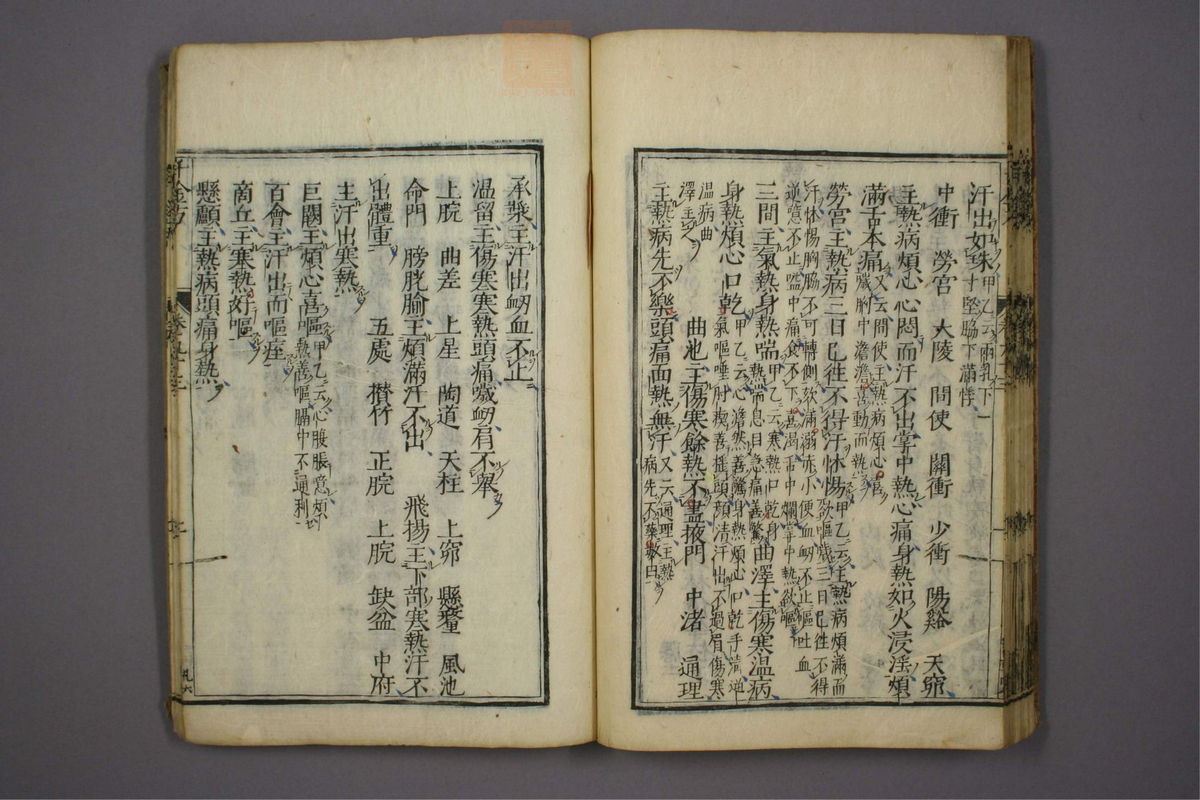 汗出如珠甲乙云兩乳下一寸堅脇下滿悸
中衝 勞宮 大陵 間使 關衝 少衝 陽谿 天窌
主熱病煩心心悶而汗不出掌中熱心痛身熱如火浸淫煩
滿舌本痛又云間使主熱病煩心喜噦胸中澹澹喜動而熱
勞宮主熱病三日已往不得汗怵惕甲乙云主熱病煩滿而欲嘔噦三日已往不得
汗怵惕胸脇不可轉側欬滿溺赤小便血衂不止嘔吐血
逆噫不止嗌中痛食不下善渴舌中爛掌中熱欲嘔
三間主氣熱身熱喘甲乙云寒熱口乾身熱喘息目急痛善驚曲澤主傷寒溫病
身熱煩心口乾甲乙云心澹然善驚身熱煩心口乾手清逆氣嘔唾肘瘈善搖頭顏清汗出不過眉傷寒
溫病曲澤主之 曲池主傷寒餘熱不盡掖門 中渚 通理
主熱病先不樂頭痛面熱無汗又云通理主熱病先不樂數日
承漿主汗出衂血不止
溫留主傷寒寒熱頭痛噦衂肩不舉
上脘 曲差 上星 陶道 天柱 上窌 懸釐 風池
命門 膀胱腧主煩滿汗不出 飛揚主下部寒熱汗不
出體重 五處 攅竹 正脘 上脘 缺盆 中府
主汗出寒熱
巨闕主煩心喜嘔甲乙云心腹脹噫煩熱善嘔膈中不通利
百會主汗出而嘔痓
商丘主寒熱好嘔
懸顱主熱病頭痛身熱